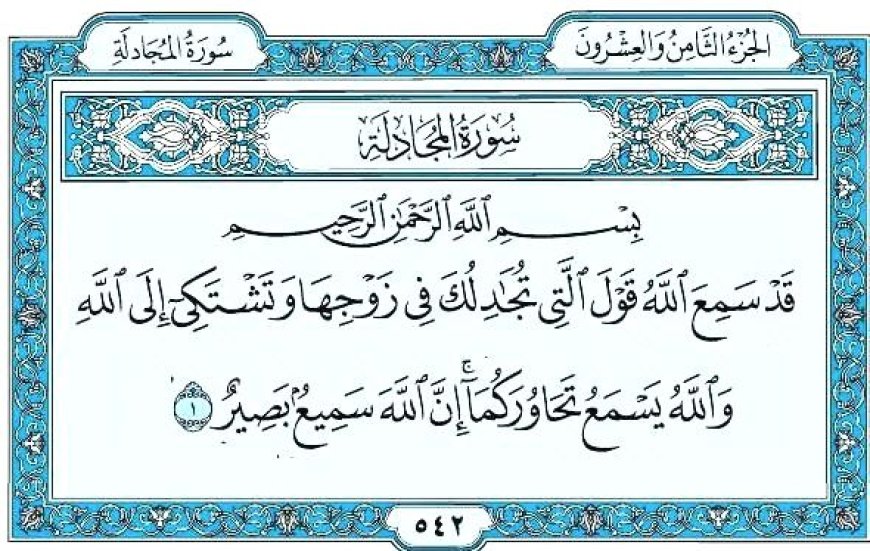 الجُزْءُ الثَّامِنُ وَالعِشْرُونَ
سُورَةُ المُجَادلَةِ
سُورَةُ المُجَادلَةِ
بِسْمِ ٱللَّهِ ٱلرَّحْمَٰنِ ٱلرَّحِيمِ
قَدْ سَمِعَ ٱللَّهُ قَوْلَ ٱلَّتِى تُجَٰدِلُكَ فِى زَوْجِهَا وَتَشْتَكِىٓ إِلَى ٱللَّهِ
وَٱللَّهُ يَسْمَعُ تَحَاوُرَكُمَآ ۚ إِنَّ ٱللَّهَ سَمِيعٌۢ بَصِيرٌ ١
٥٤٢